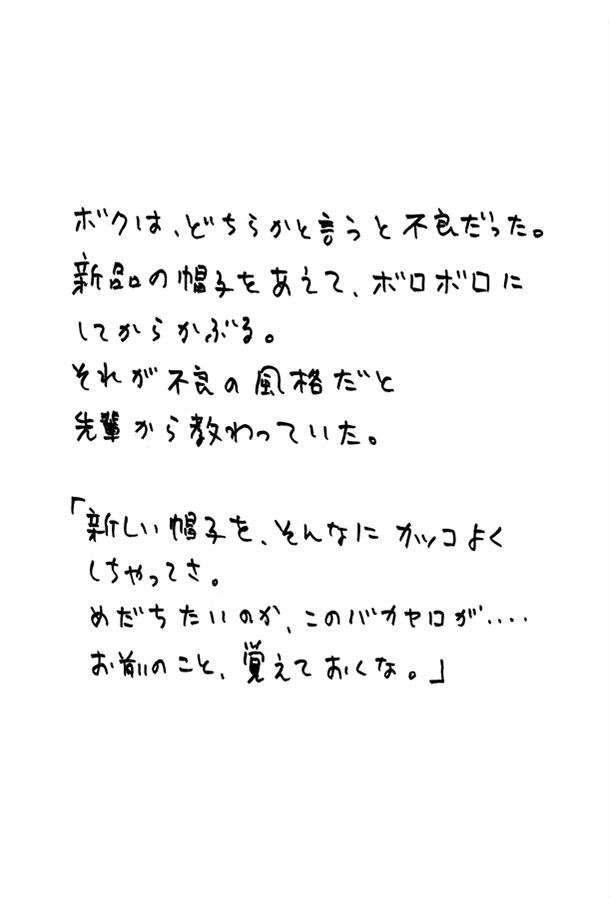 ボクは、どちらかと言うと不良だった。
新品の帽子をあえて、ボロボロに
してからかぶる。
それが不良の風格だと
先輩から教わっていた。
「新しい帽子を、そんなにカッコよく
しちゃってさ。
めだちたいのか、このバカヤロが‥‥
お前のこと、覚えておくな。」